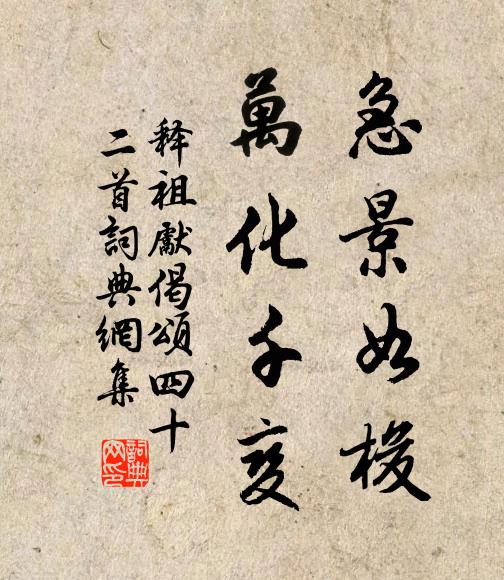 急景如梭
萬化千变
释祖獻偈頌四十
二首詞典網集
詞典
网印